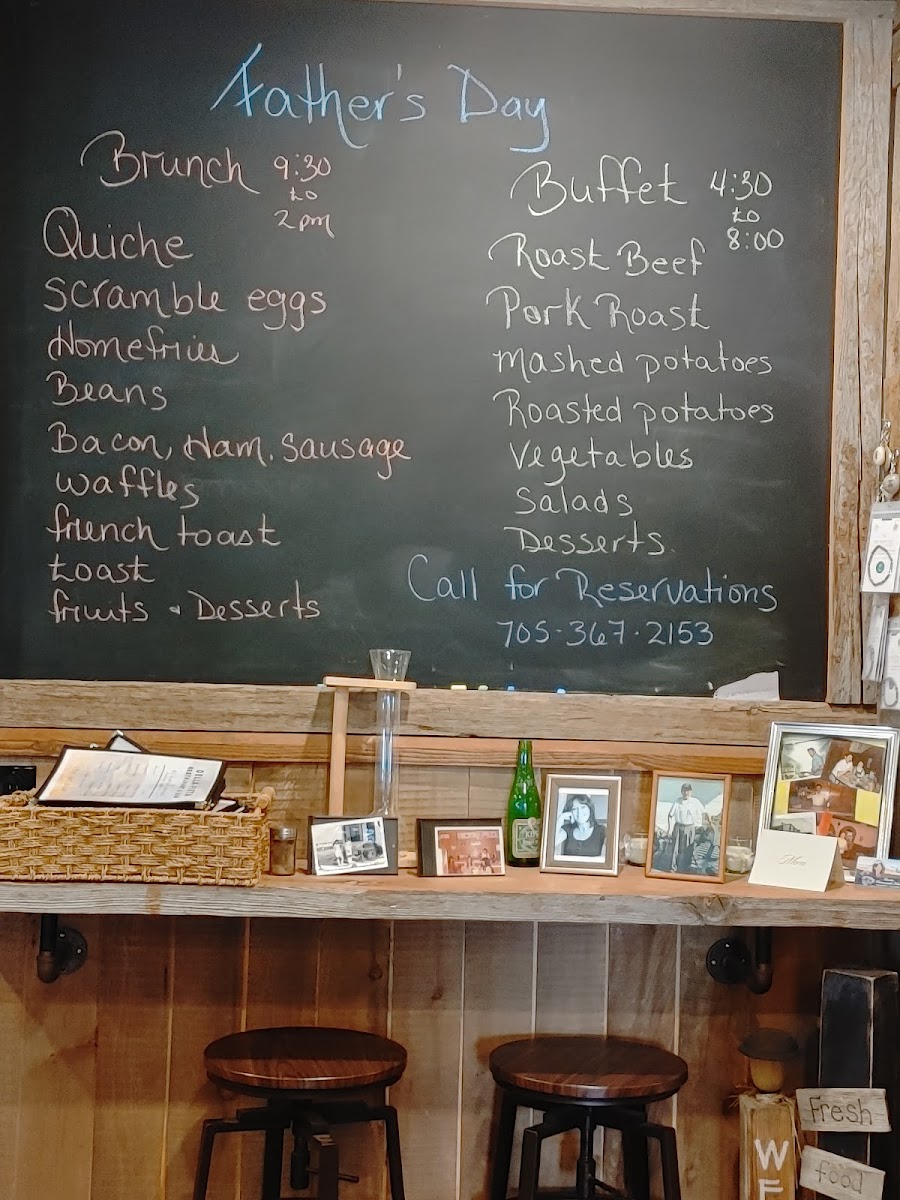 Father's Day
Brunch 9:30
to
2pm
Quiche
Scramble eggs
Homefries
Beans
Bacon, Ham, Sausage
waffles
french toast
toast
fruits & Desserts
Buffet 4:30
to
8:00
Roast Beef
Pork Roast
Mashed potatoes
Roasted potatoes
Vegetables
Salads
Desserts
Call for Reservations
705-367-2153
Fresh
food